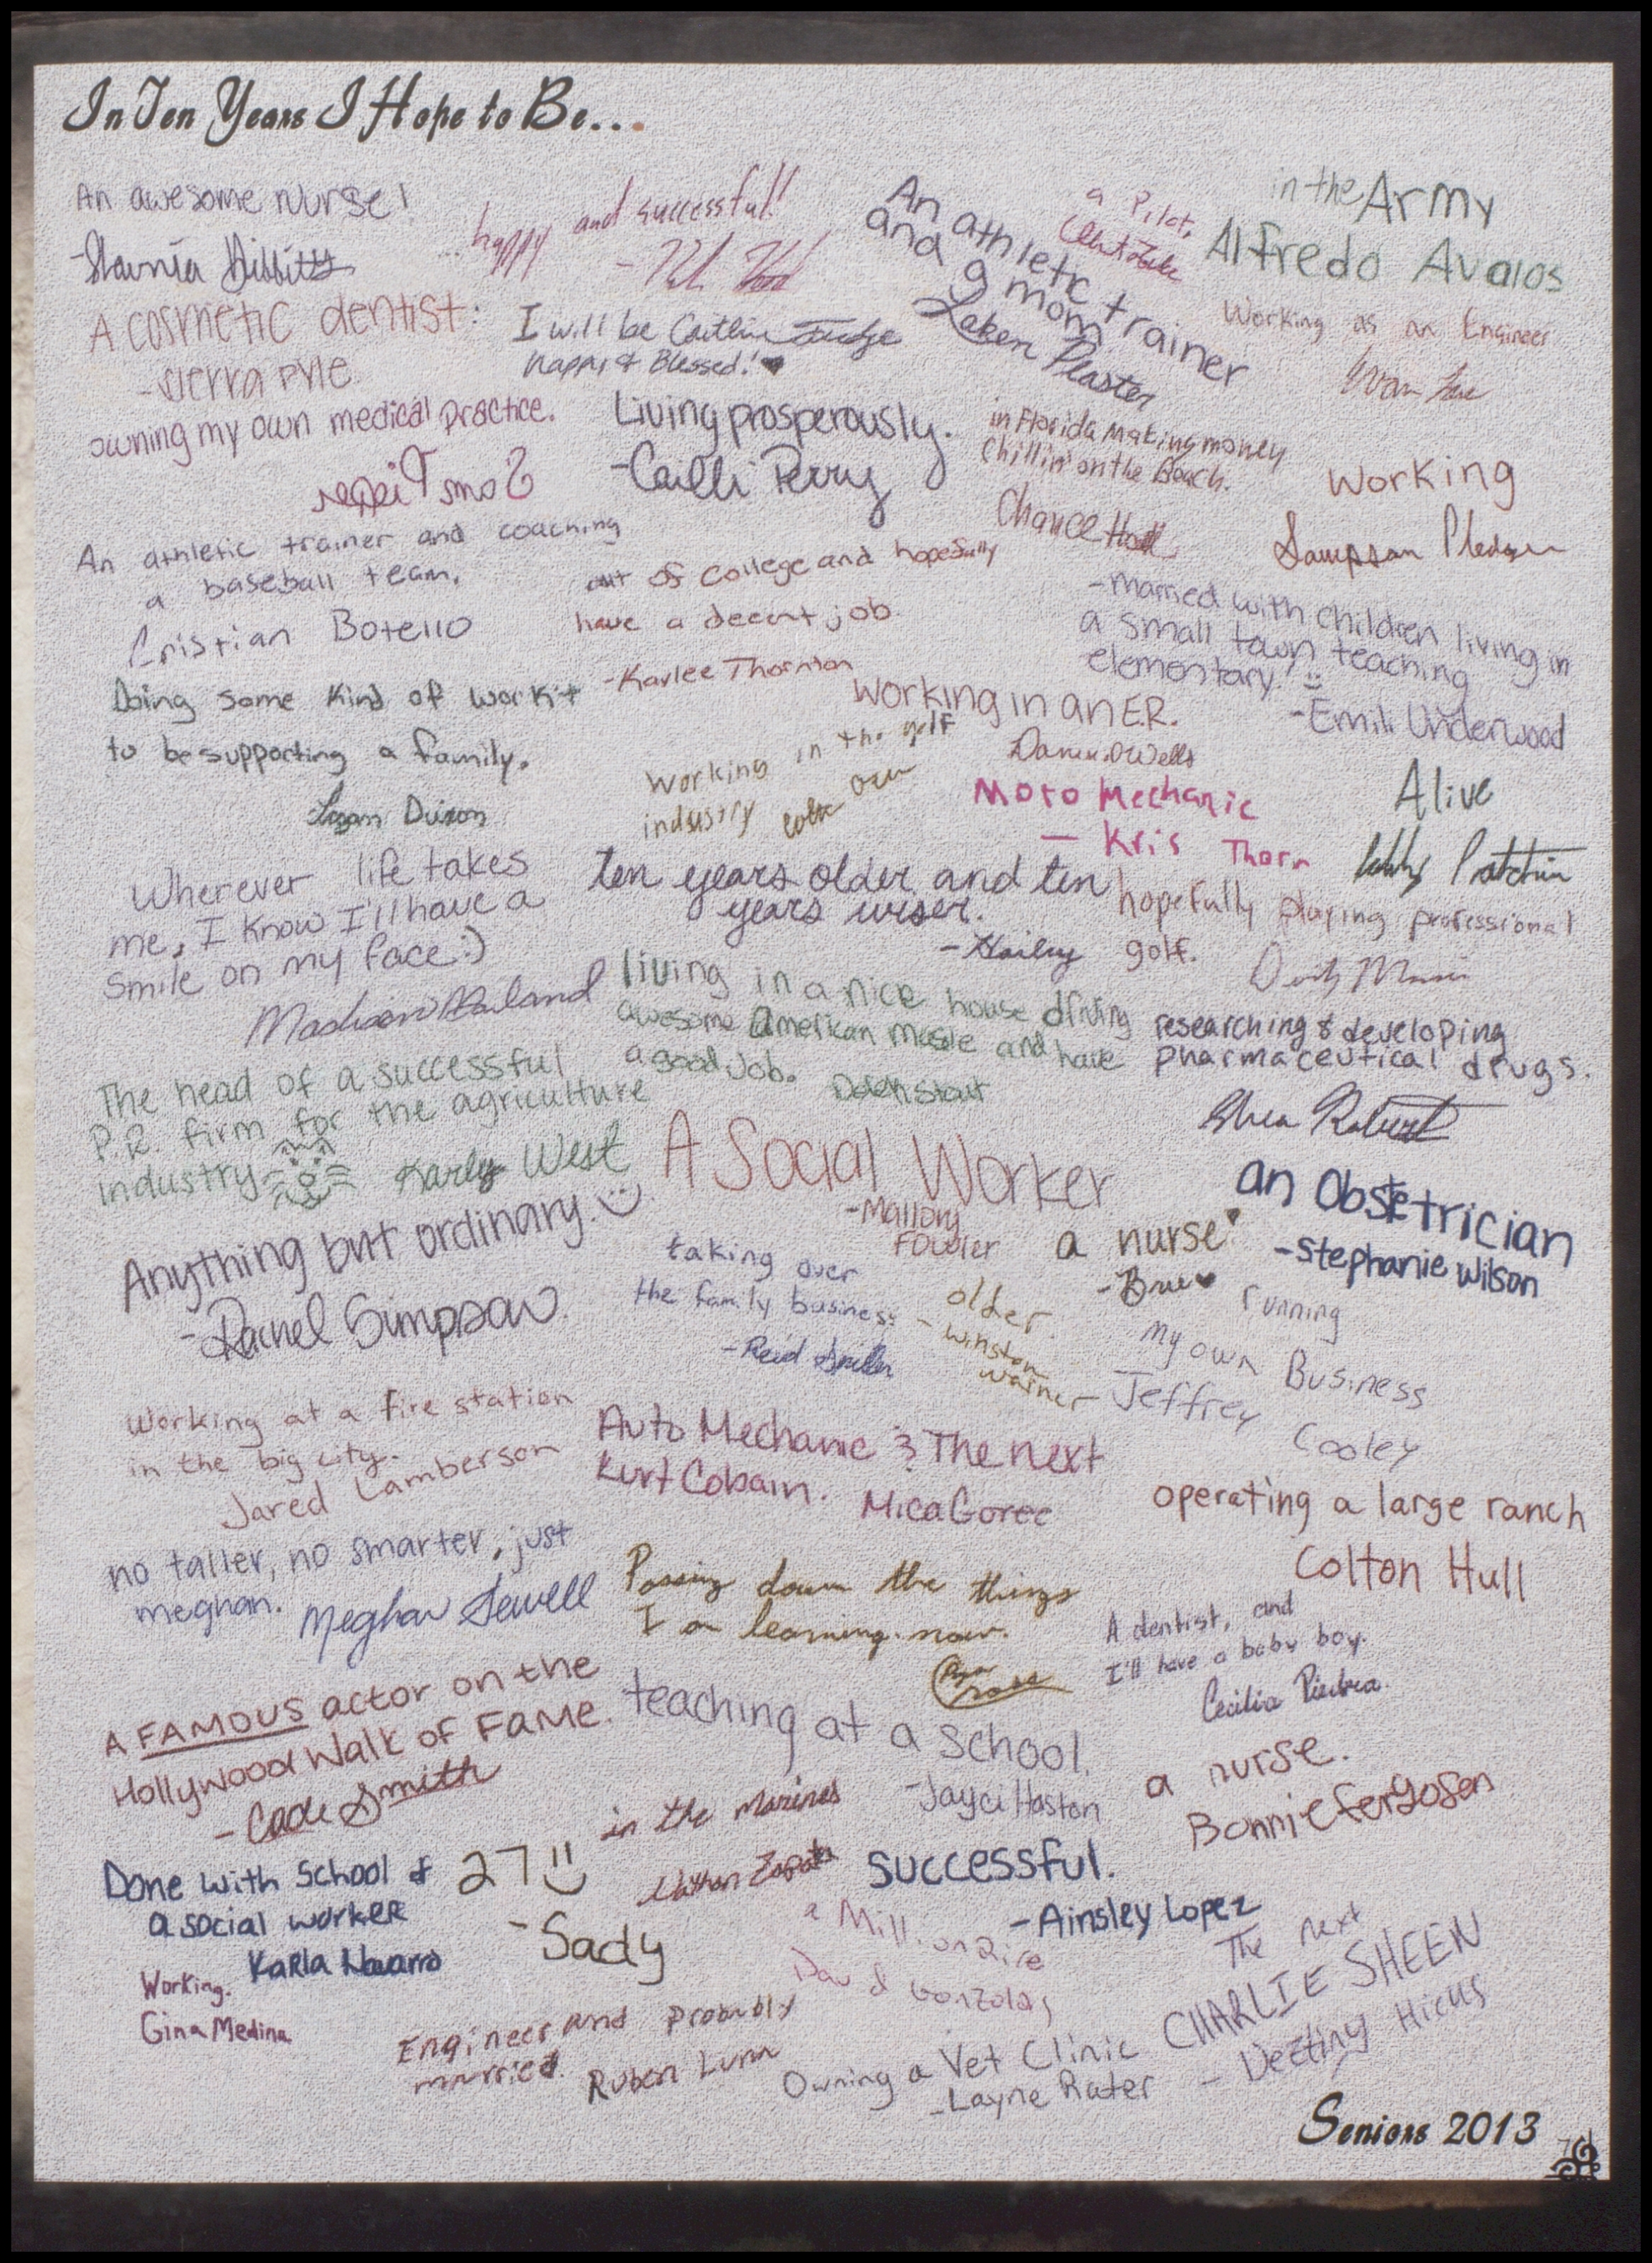 In Ten Years I Hope to Be...
An awesome nurse!
...happy and successful!
An athletic trainer
and a mom
Laken Plaster
a Pilot,
in the Army
Alfredo Avalos
A cosmetic dentist:
-Sierra Pyle
I will be Caitlin Judge
happy & Blessed!
Working as an Engineer
owning my own medical practice.
Living prosperously.
-Cailli Perry
in Florida making money
chillin' on the Beach.
Chance Hall
Working
Sampson Pledger
An athletic trainer and coaching
a baseball team.
Cristian Botello
out of college and hopefully
have a decent job
-Karlee Thornton
-married with children living in
a small town teaching
elementary! :)
-Emili Underwood
Doing some kind of work it
to be supporting a family.
Logan Dixon
working in the golf
industry
Working in an E.R.
Moto Mechanic
- Kris Thorn
Alive
Wherever life takes
me, I know I'll have a
smile on my face :)
Madison
ten years older and ten
years wiser.
-Hailey
hopefully playing professional
golf.
living in a nice house driving
awesome American muscle and have
a good Job.
researching & developing
pharmaceutical drugs.
Shea
The head of a successful
P.R. firm for the agriculture
industry
Karly West
A Social Worker
-Mallory
Fowler
an Obstetrician
-Stephanie Wilson
Anything but ordinary. :)
-Rachel Simpson
taking over
the family business
-Reid
older.
-Winston
Warner
a nurse
-Bree
running
my own Business
Jeffrey Cooley
Working at a fire station
in the big city.
Jared Lamberson
Auto Mechanic & The next
Kurt Cobain.
Mica Goree
operating a large ranch
Colton Hull
no taller, no smarter, just
meghan.
Meghan Sewell
Passing down the things
I am learning now.
A dentist, and
I'll have a baby boy.
Cecilia Piedra
A FAMOUS actor on the
Hollywood Walk of Fame.
-Cade Smith
teaching at a school.
-Jayci Haston
a nurse.
Bonnie Fergosen
in the marines
Nathan Zapata
Done with School &
a social worker
Karla Navarro
27 :)
-Sady
successful.
-Ainsley Lopez
a Millionaire
David Gonzolas
The next
CHARLIE SHEEN
- Destiny Hicks
Working.
Gina Medina
Engineer and probably
married.
Ruben Luna
Owning a Vet Clinic
-Layne Rater
Seniors 2013